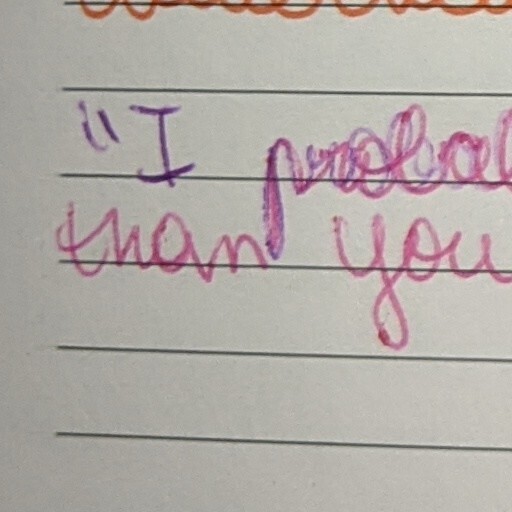 "I proba
than you